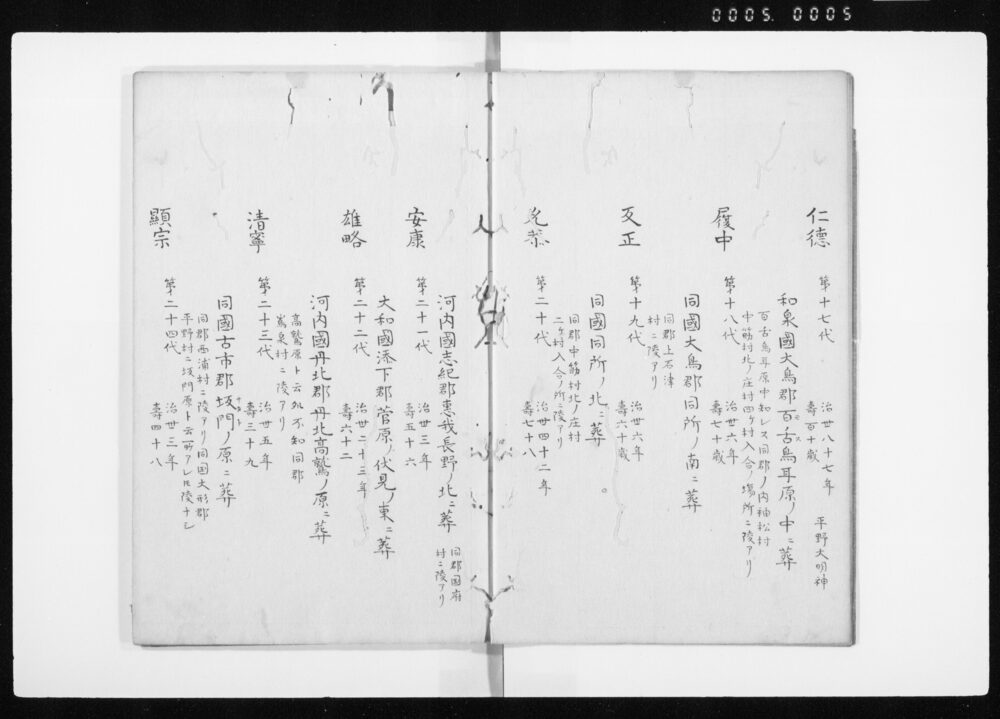 0005 0005
仁徳
第十七代
治世八十七年
壽百十歳
平野大明神
和泉國大鳥郡百舌鳥耳原ノ中ニ葬
百舌鳥耳原中知レス同郡ノ内神松村
中筋村北ノ庄村四ケ村入合ノ場所ニ陵アリ
履中
第十八代
治世六年
壽七十歳
同國大鳥郡同所ノ南ニ葬
同郡上石津
村ニ陵アリ
反正
第十九代
治世六年
壽六十歳
同國同所ノ北ニ葬
同郡中筋村北ノ庄村
二ケ村入合ノ所ニ陵アリ
允恭
第二十代
治世四十二年
壽七十八
河内國志紀郡恵我長野ノ北ニ葬
同郡國府
村ニ陵アリ
安康
第二十一代
治世三年
壽五十六
大和國添下郡菅原ノ伏見ノ東ニ葬
雄略
第二十二代
治世二十三年
壽六十二
河内國丹北郡丹北高鷲ノ原ニ葬
高鷲原ト云処不知同郡
嶌泉村ニ陵アリ
清寧
第二十三代
治世五年
壽三十九
同國古市郡坂門ノ原ニ葬
同郡西浦村ニ陵アリ同国大形郡
平野村ニ坂門原ト云所アレ𪜈陵ナシ
顯宗
第二十四代
治世三年
壽四十八